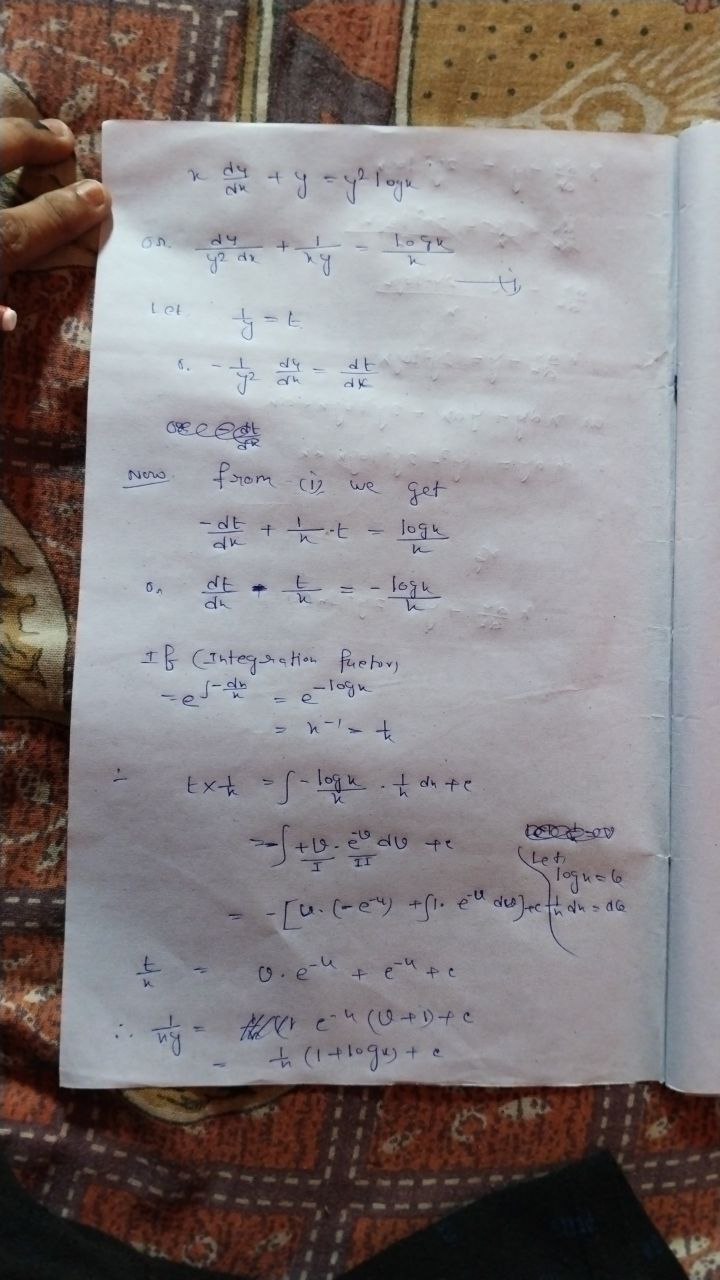 x dy/dx + y = y² logx
or dy/y² dx + 1/xy = logx/x —(i)
Let 1/y = t
or - 1/y² dy/dx = dt/dx
Now from (i) we get
-dt/dx + 1/x · t = logx/x
or dt/dx - t/x = - logx/x
If (Integration factor)
= e^∫-dx/x = e^-logx
= x^-1 = 1/x
∴ t × 1/x = ∫ - logx/x · 1/x dx + c
= -∫ +v · e^-v dv + c
I II
Let,
logx = v
1/x dx = dv
= - [v · (-e^-v) + ∫1 · e^-v dv] + c
t/x = v · e^-v + e^-v + c
∴ 1/xy = e^-v (v + 1) + c
= 1/x (1 + logx) + c